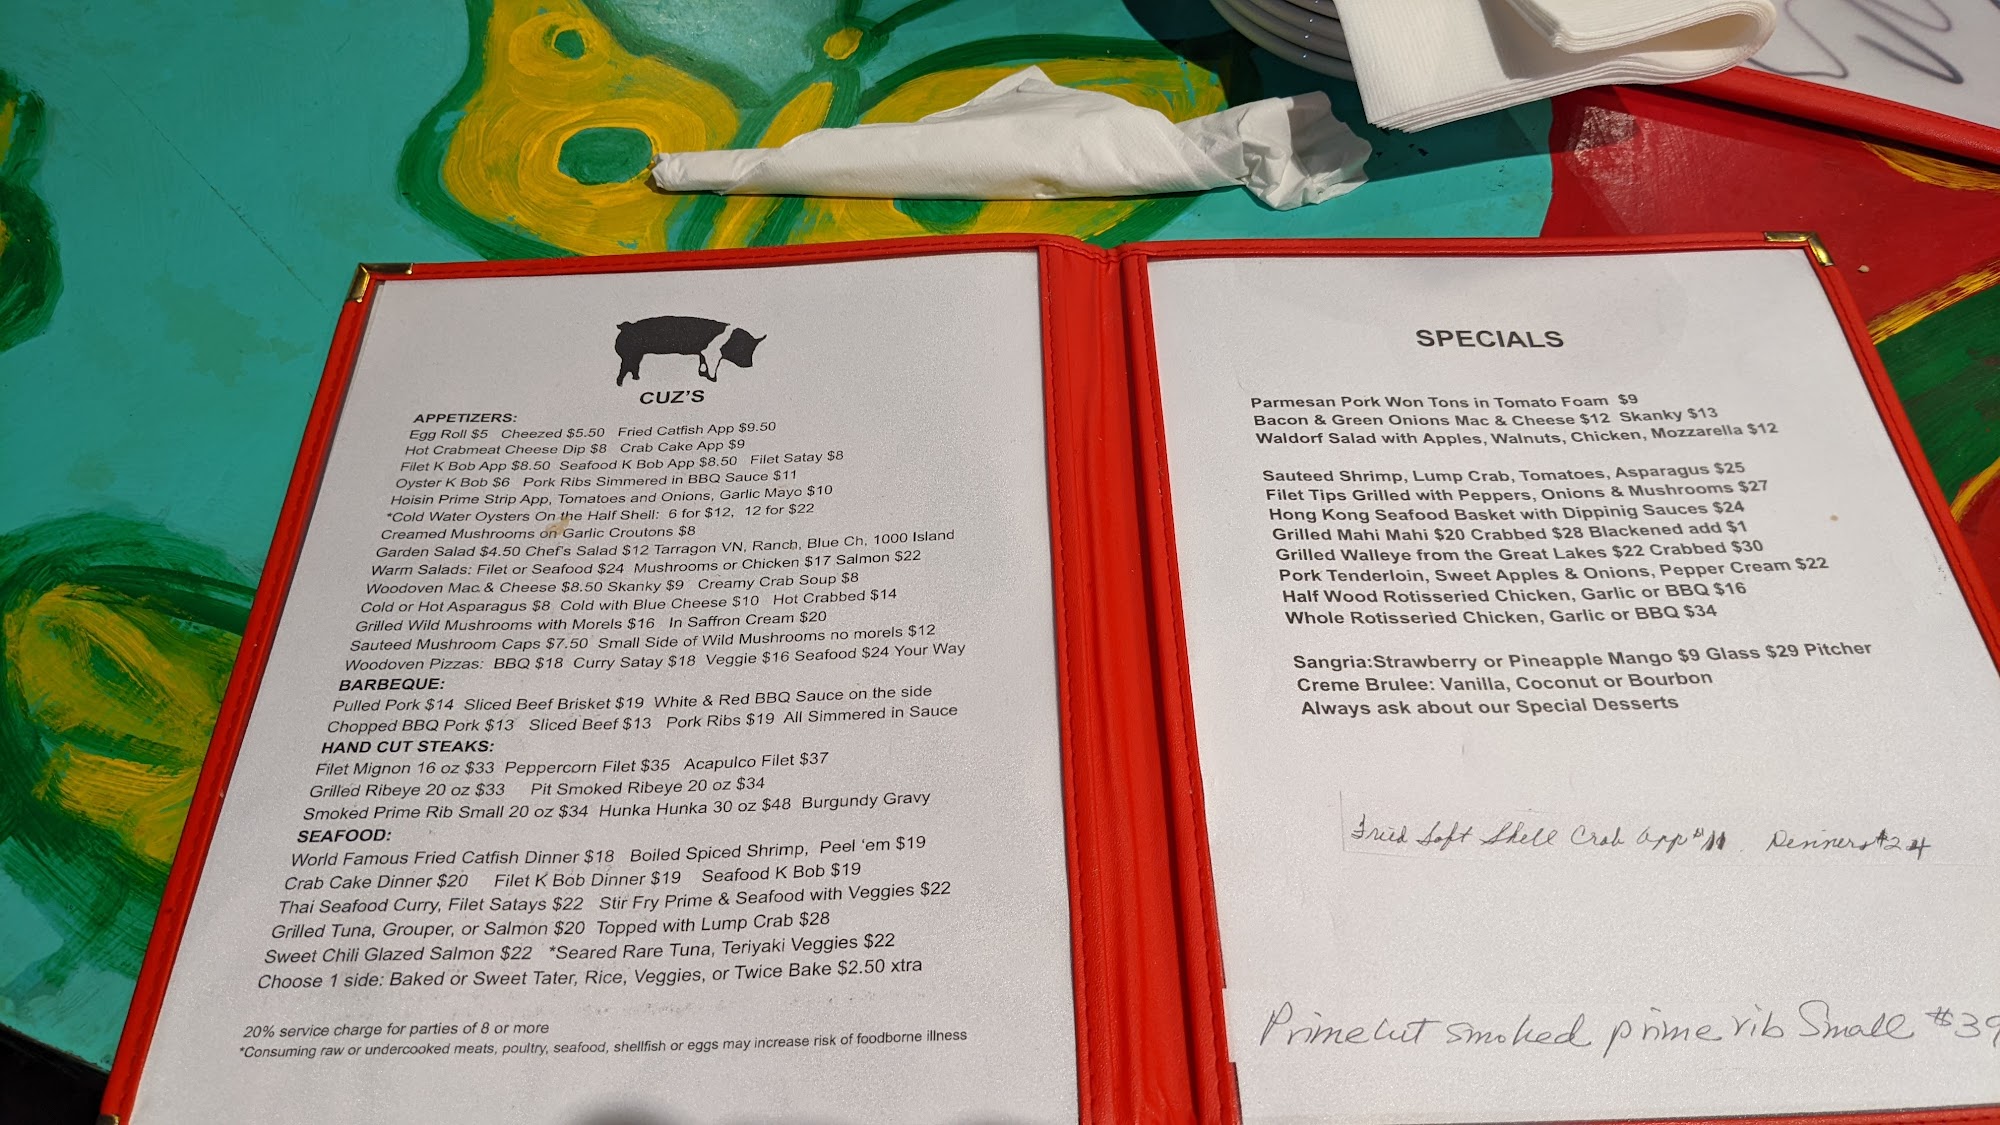 CUZ'S
APPETIZERS:
Egg Roll $5 Cheezed $5.50 Fried Catfish App $9.50
Hot Crabmeat Cheese Dip $8 Crab Cake App $9
Filet K Bob App $8.50 Seafood K Bob App $8.50 Filet Satay $8
Oyster K Bob $6 Pork Ribs Simmered in BBQ Sauce $11
Hoisin Prime Strip App, Tomatoes and Onions, Garlic Mayo $10
*Cold Water Oysters On the Half Shell: 6 for $12, 12 for $22
Creamed Mushrooms on Garlic Croutons $8
Garden Salad $4.50 Chef's Salad $12 Tarragon VN, Ranch, Blue Ch, 1000 Island
Warm Salads: Filet or Seafood $24 Mushrooms or Chicken $17 Salmon $22
Woodoven Mac & Cheese $8.50 Skanky $9 Creamy Crab Soup $8
Cold or Hot Asparagus $8 Cold with Blue Cheese $10 Hot Crabbed $14
Grilled Wild Mushrooms with Morels $16 In Saffron Cream $20
Sauteed Mushroom Caps $7.50 Small Side of Wild Mushrooms no morels $12
Woodoven Pizzas: BBQ $18 Curry Satay $18 Veggie $16 Seafood $24 Your Way
BARBEQUE:
Pulled Pork $14 Sliced Beef Brisket $19 White & Red BBQ Sauce on the side
Chopped BBQ Pork $13 Sliced Beef $13 Pork Ribs $19 All Simmered in Sauce
HAND CUT STEAKS:
Filet Mignon 16 oz $33 Peppercorn Filet $35 Acapulco Filet $37
Grilled Ribeye 20 oz $33 Pit Smoked Ribeye 20 oz $34
Smoked Prime Rib Small 20 oz $34 Hunka Hunka 30 oz $48 Burgundy Gravy
SEAFOOD:
World Famous Fried Catfish Dinner $18 Boiled Spiced Shrimp, Peel 'em $19
Crab Cake Dinner $20 Filet K Bob Dinner $19 Seafood K Bob $19
Thai Seafood Curry, Filet Satays $22 Stir Fry Prime & Seafood with Veggies $22
Grilled Tuna, Grouper, or Salmon $20 Topped with Lump Crab $28
Sweet Chili Glazed Salmon $22 *Seared Rare Tuna, Teriyaki Veggies $22
Choose 1 side: Baked or Sweet Tater, Rice, Veggies, or Twice Bake $2.50 xtra
20% service charge for parties of 8 or more
*Consuming raw or undercooked meats, poultry, seafood, shellfish or eggs may increase risk of foodborne illness
SPECIALS
Parmesan Pork Won Tons in Tomato Foam $9
Bacon & Green Onions Mac & Cheese $12 Skanky $13
Waldorf Salad with Apples, Walnuts, Chicken, Mozzarella $12
Sauteed Shrimp, Lump Crab, Tomatoes, Asparagus $25
Filet Tips Grilled with Peppers, Onions & Mushrooms $27
Hong Kong Seafood Basket with Dippinig Sauces $24
Grilled Mahi Mahi $20 Crabbed $28 Blackened add $1
Grilled Walleye from the Great Lakes $22 Crabbed $30
Pork Tenderloin, Sweet Apples & Onions, Pepper Cream $22
Half Wood Rotisseried Chicken, Garlic or BBQ $16
Whole Rotisseried Chicken, Garlic or BBQ $34
Sangria:Strawberry or Pineapple Mango $9 Glass $29 Pitcher
Creme Brulee: Vanilla, Coconut or Bourbon
Always ask about our Special Desserts
Fried Soft Shell Crab app $11 Dinners $24
Prime cut smoked prime rib Small $39